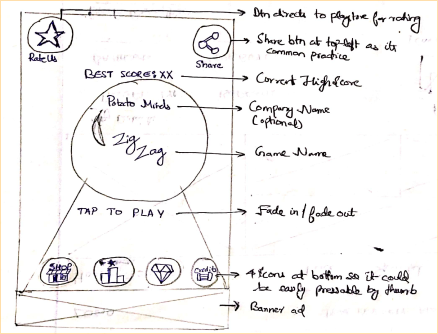 Btn directs to playstore for rating
Rate Us
Share
Share btn at top left as its
common practice
BEST SCORE: XX
Current Highscore
Potato Minds
Company Name
(optional)
Zig
Zag
Game Name
TAP TO PLAY
Fade in / fade out
SHOP
Credits
4 icons at bottom so it could
be easily pressable by thumb
Banner ad